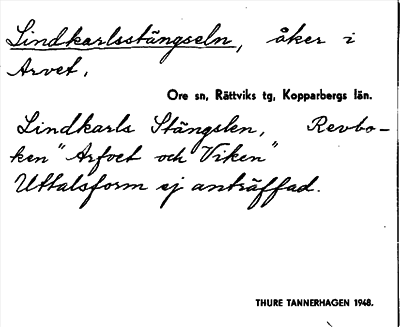 Lindkarlsstängseln, åker i
Arvet.
Ore sn, Rättviks tg, Kopparbergs län.
Lindkarls Stängslen, Revbo-
ken "Arfvet och Viken"
Uttalsform ej anträffad.
THURE TANNERHAGEN 1948.